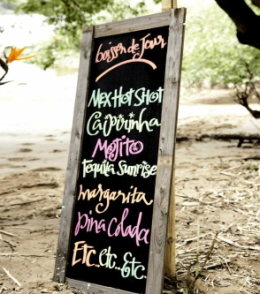 boisson de Jour
Mex Hot Shot
Caipirinha
Mojito
Tequila Sunrise
margarita
pina Colada
Etc..etc..Etc..